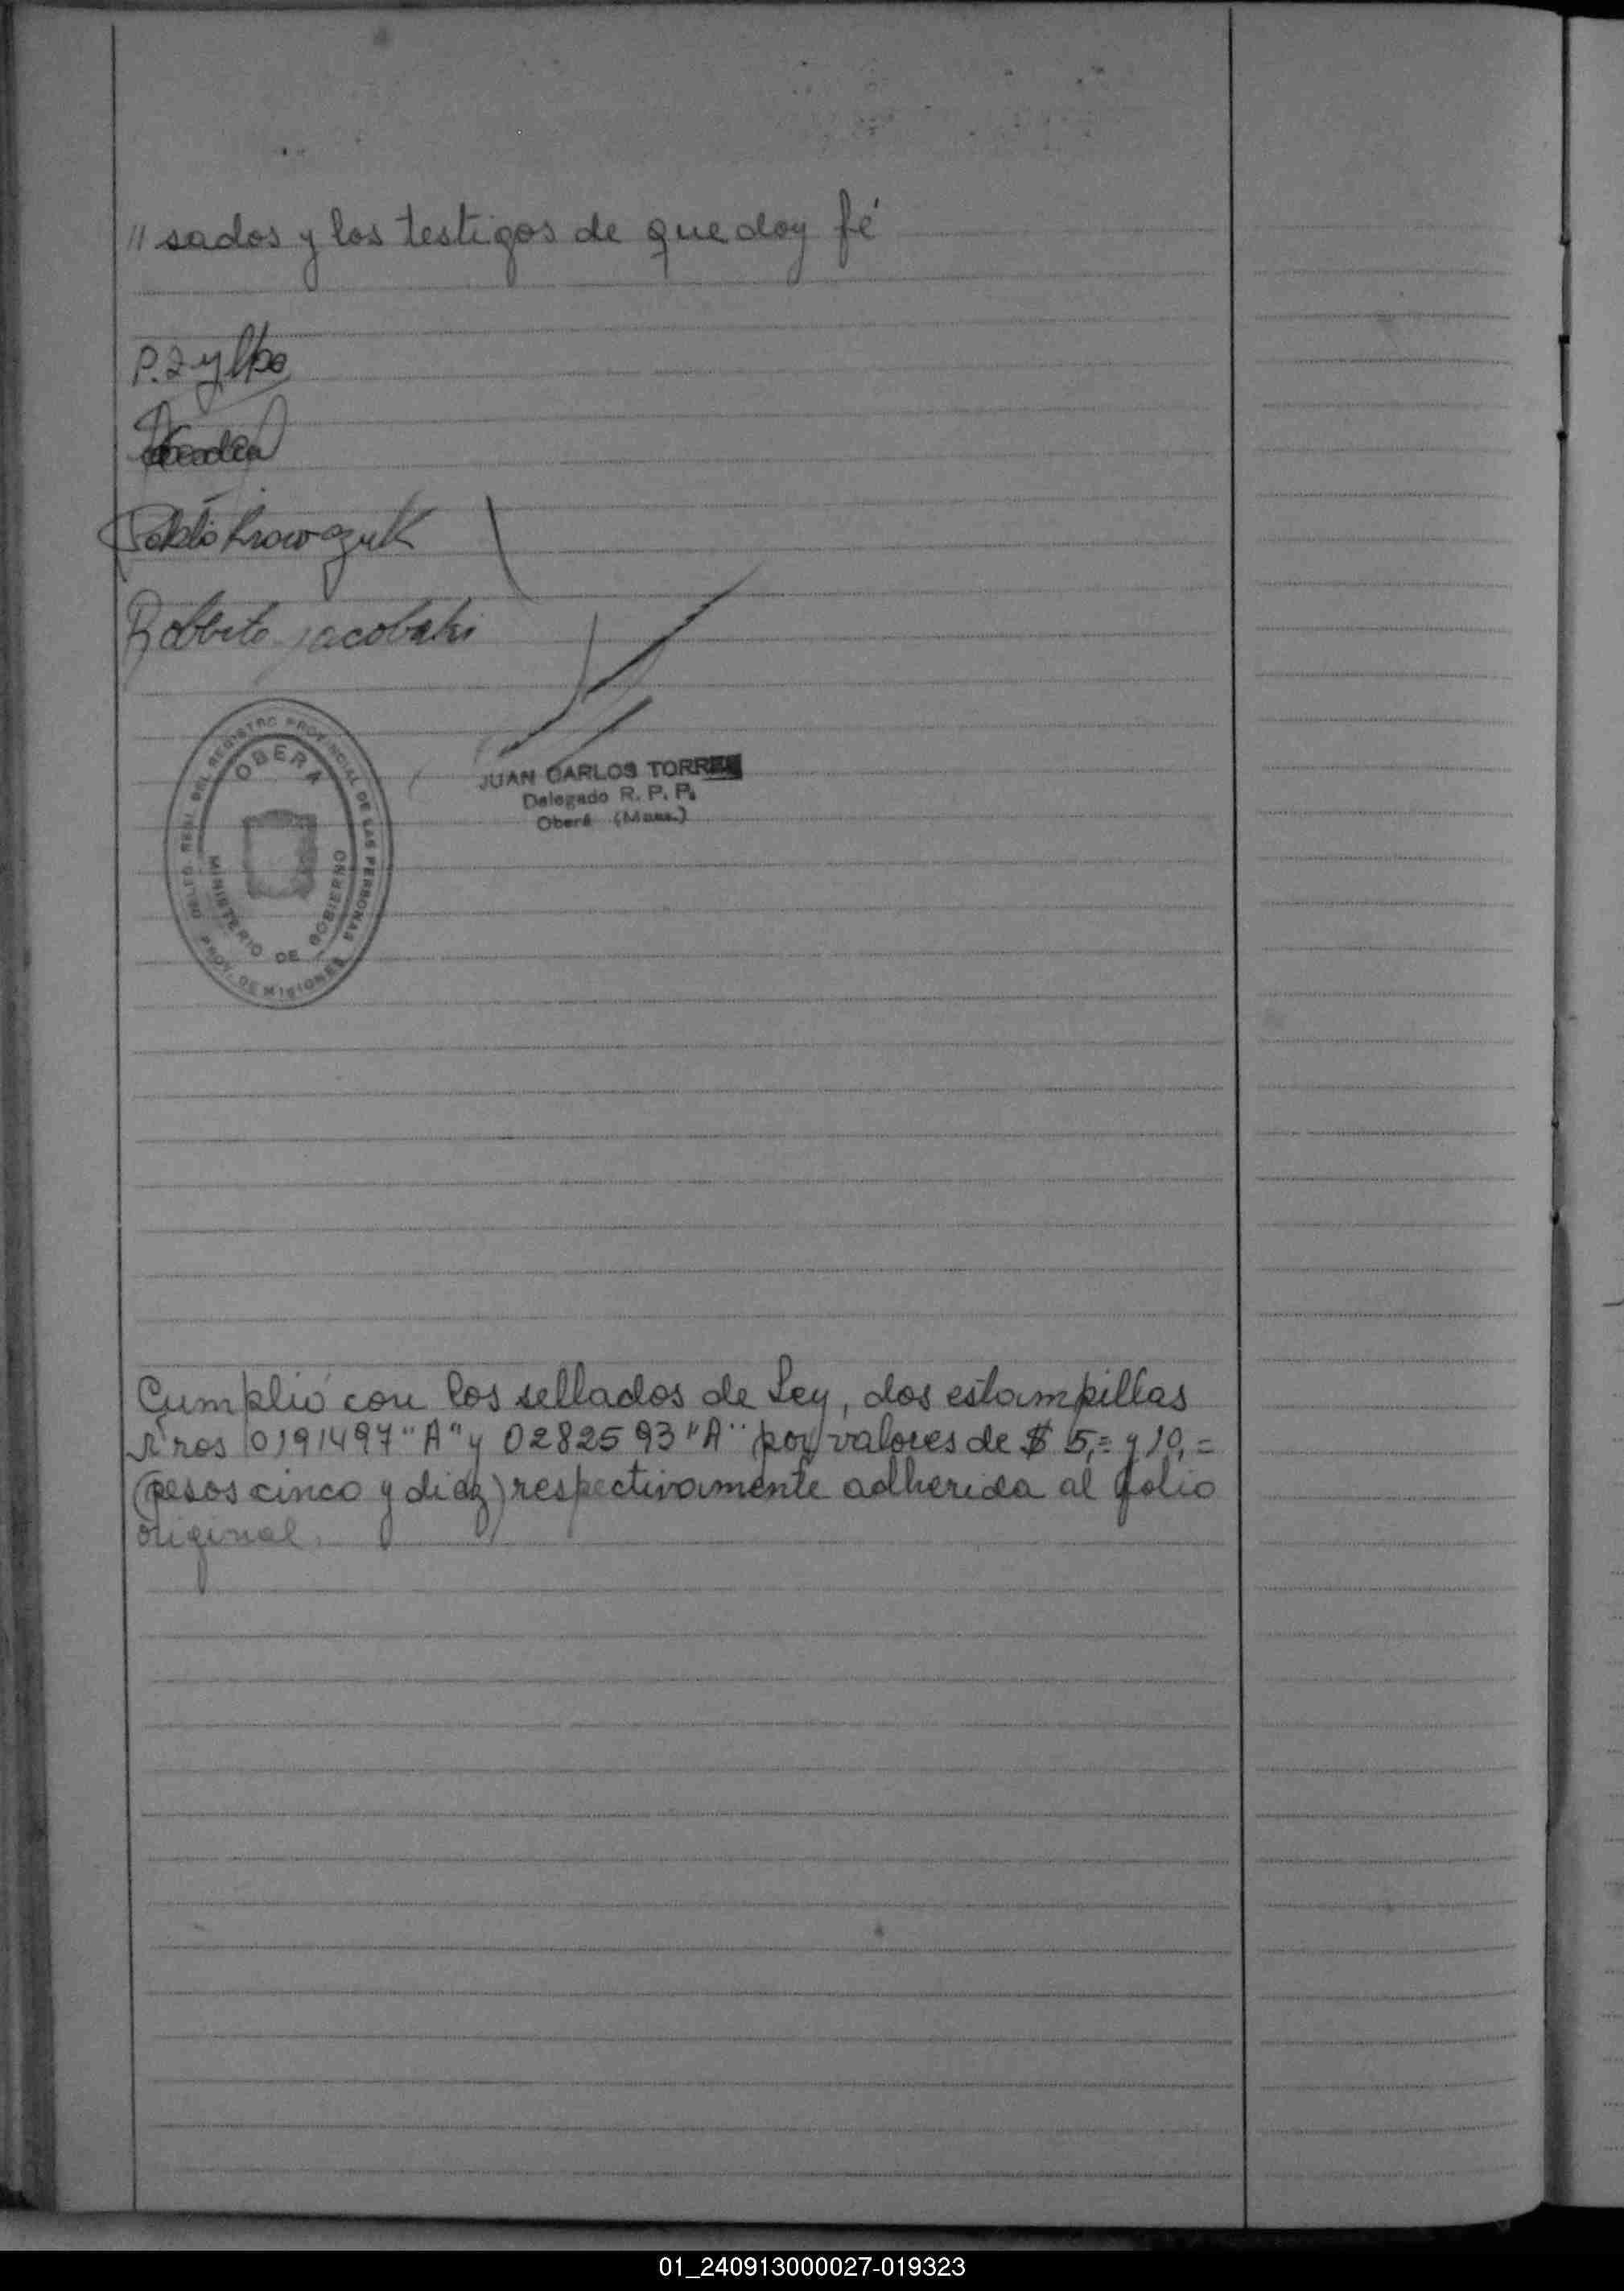 // sados y los testigos de que doy fé
P. Zylko
Roberto Jacobski
OBERA
MINISTERIO DE GOBIERNO
REGISTRO PROVINCIAL DE LAS PERSONAS
PROV. DE MISIONES
JUAN CARLOS TORRES
Delegado R. P. P.
Oberá (Mnes.)
Cumplió con los sellados de Ley, dos estampillas
Nros 0191497 "A" y 0282593 "A" por valores de $ 5,= y 10,=
(pesos cinco y diez) respectivamente adherida al folio
original.
01_240913000027-019323